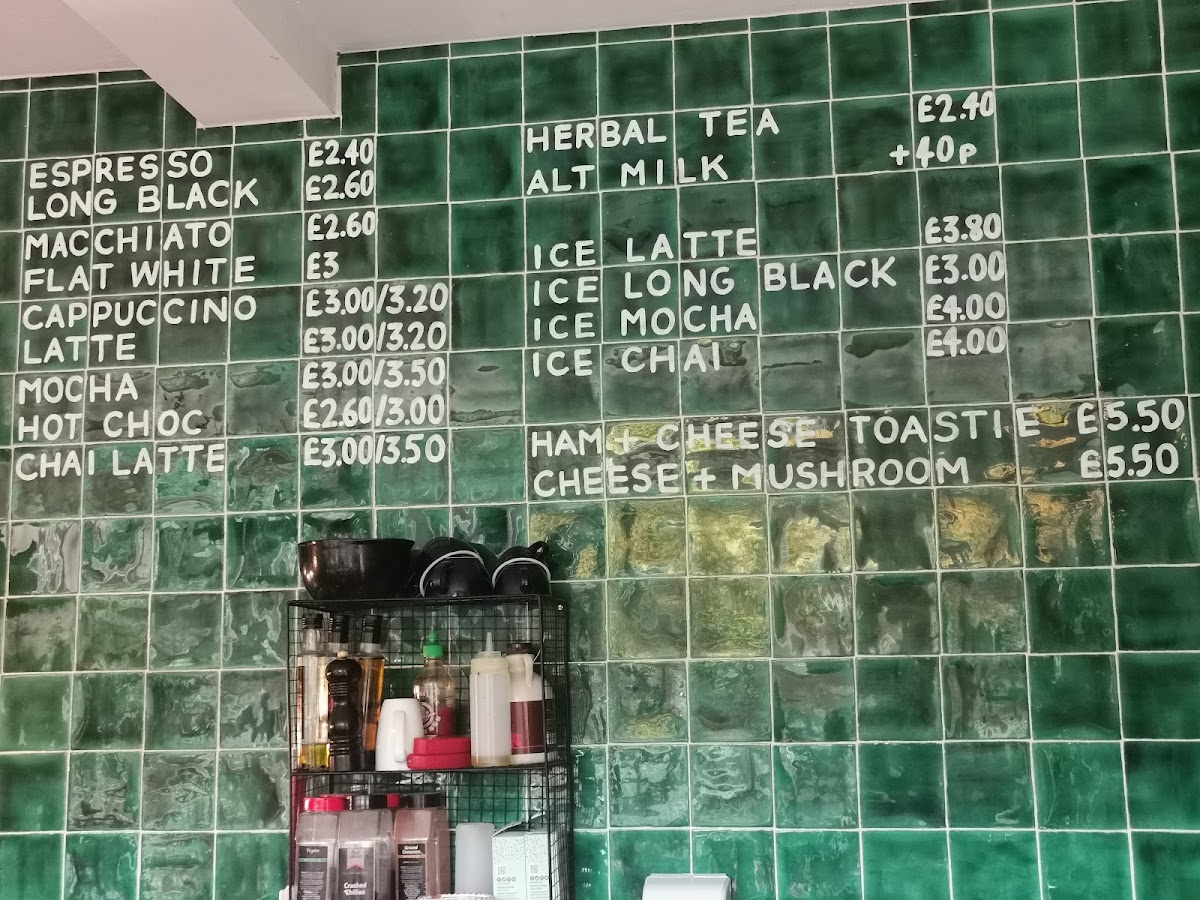 ESPRESSO £2.40
LONG BLACK £2.60
MACCHIATO £2.60
FLAT WHITE £3
CAPPUCCINO £3.00/3.20
LATTE £3.00/3.20
MOCHA £3.00/3.50
HOT CHOC £2.60/3.00
CHAI LATTE £3.00/3.50
HERBAL TEA £2.40
ALT MILK +40p
ICE LATTE £3.80
ICE LONG BLACK £3.00
ICE MOCHA £4.00
ICE CHAI £4.00
HAM + CHEESE TOASTIE £5.50
CHEESE + MUSHROOM £5.50
Crushed
Chillies
Ground
Cinnamon